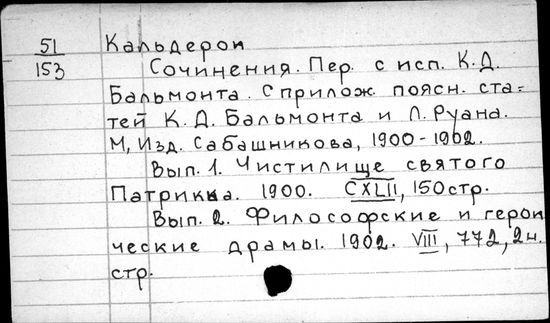 51 Кальдерон
153 Сочинения. Пер. с исп. К.Д.
Бальмонта. С прилож. поясн. ста-
тей К.Д. Бальмонта и Л. Руана.
М, Изд. Сабашникова, 1900-1902.
Вып. 1. Чистилище святого
Патрика. 1900. CXLII, 150 стр.
Вып. 2. Философские и герои
ческие драмы. 1902. VIII, 772, 2 н.
стр.